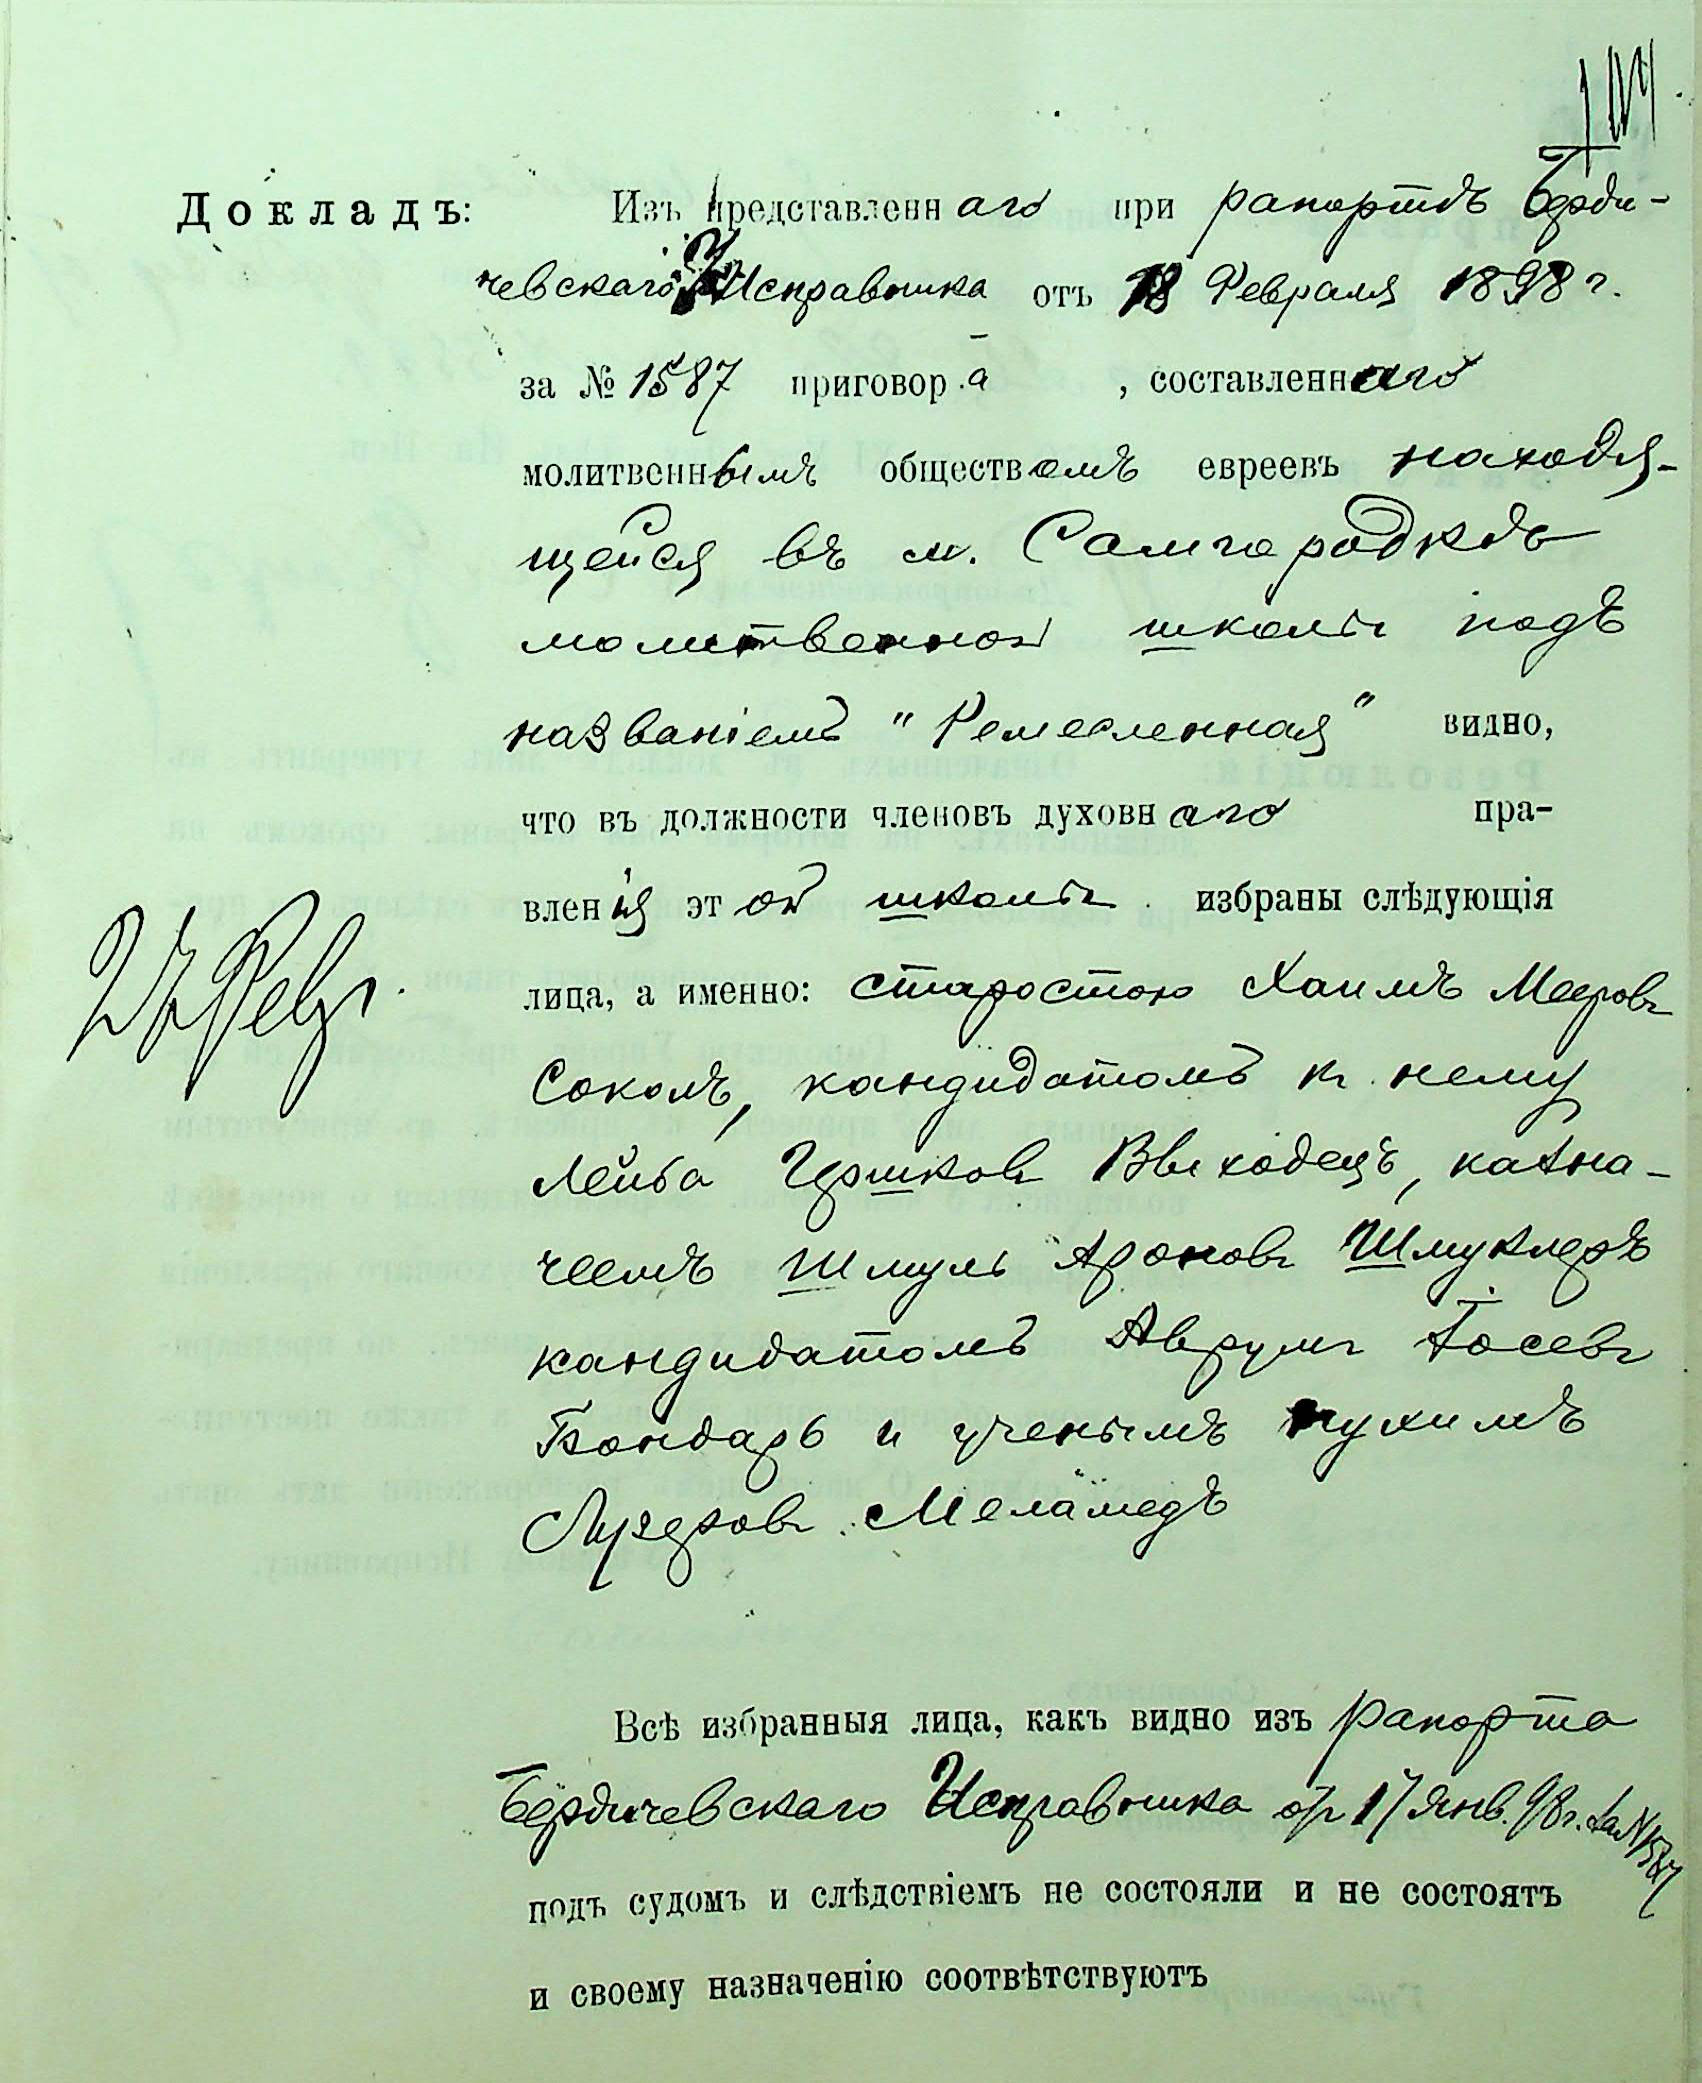 Докладъ: Изъ представленнаго при рапортѣ Берди-
чевскаго Исправника отъ 18 Февраля 1898 г.
за № 1587 приговора, составленнаго
молитвеннымъ обществомъ евреевъ находя-
щейся въ м. Самгородкѣ
молитвенной школы подъ
названіемъ "Ремесленная" видно,
что въ должности членовъ духовнаго пра-
вленія этой школы избраны слѣдующія
лица, а именно: старостою Хаимъ Мееровъ
Соколъ, кандидатомъ къ нему
Лейба Гершковъ Выходецъ, казна-
чеемъ Шмуль Ароновъ Шмуклеръ
кандидатомъ Аврумъ Іосевъ
Бондарь и ученымъ Нухимъ
Лузеровъ Меламедъ
Всѣ избранныя лица, какъ видно изъ рапорта
Бердичевскаго Исправника отъ 17 Янв. 98 г. за № 1587
подъ судомъ и слѣдствіемъ не состояли и не состоятъ
и своему назначенію соотвѣтствуютъ